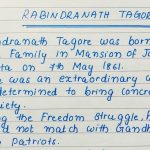 RABINDRANATH TAGOR
ndranath Tagore was born
Family in Mansion of Jo
ta on 7th May 1861.
was an extraordinary w
determined to bring concre
iety.
ng the Freedom Struggle,
d not match with Gandh
Patriots.